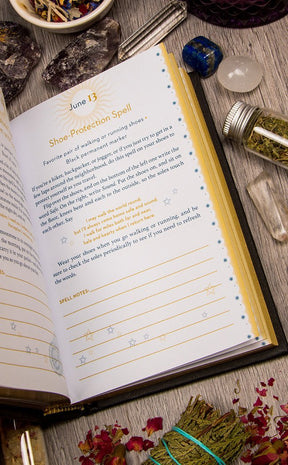 June 13
Shoe-Protection Spell
Favorite pair of walking or running shoes •
Black permanent marker
If you're a hiker, backpacker, or jogger, or if you just try to get in a
few laps around the neighborhood, do this spell on your shoes to
protect yourself as you travel.
Flip over the shoes, and on the bottom of the left one write the
word Safe. On the right, write Sound. Put the shoes on, and sit on
the floor, knees bent and each to the outside, so the soles touch
each other. Say:
I may walk the world round,
but I'll always come home safe and sound.
I walk for miles both far and near,
hale and hearty when I return here.
Wear your shoes when you go walking or running, and be
sure to check the soles periodically to see if you need to refresh
the words.
SPELL NOTES: